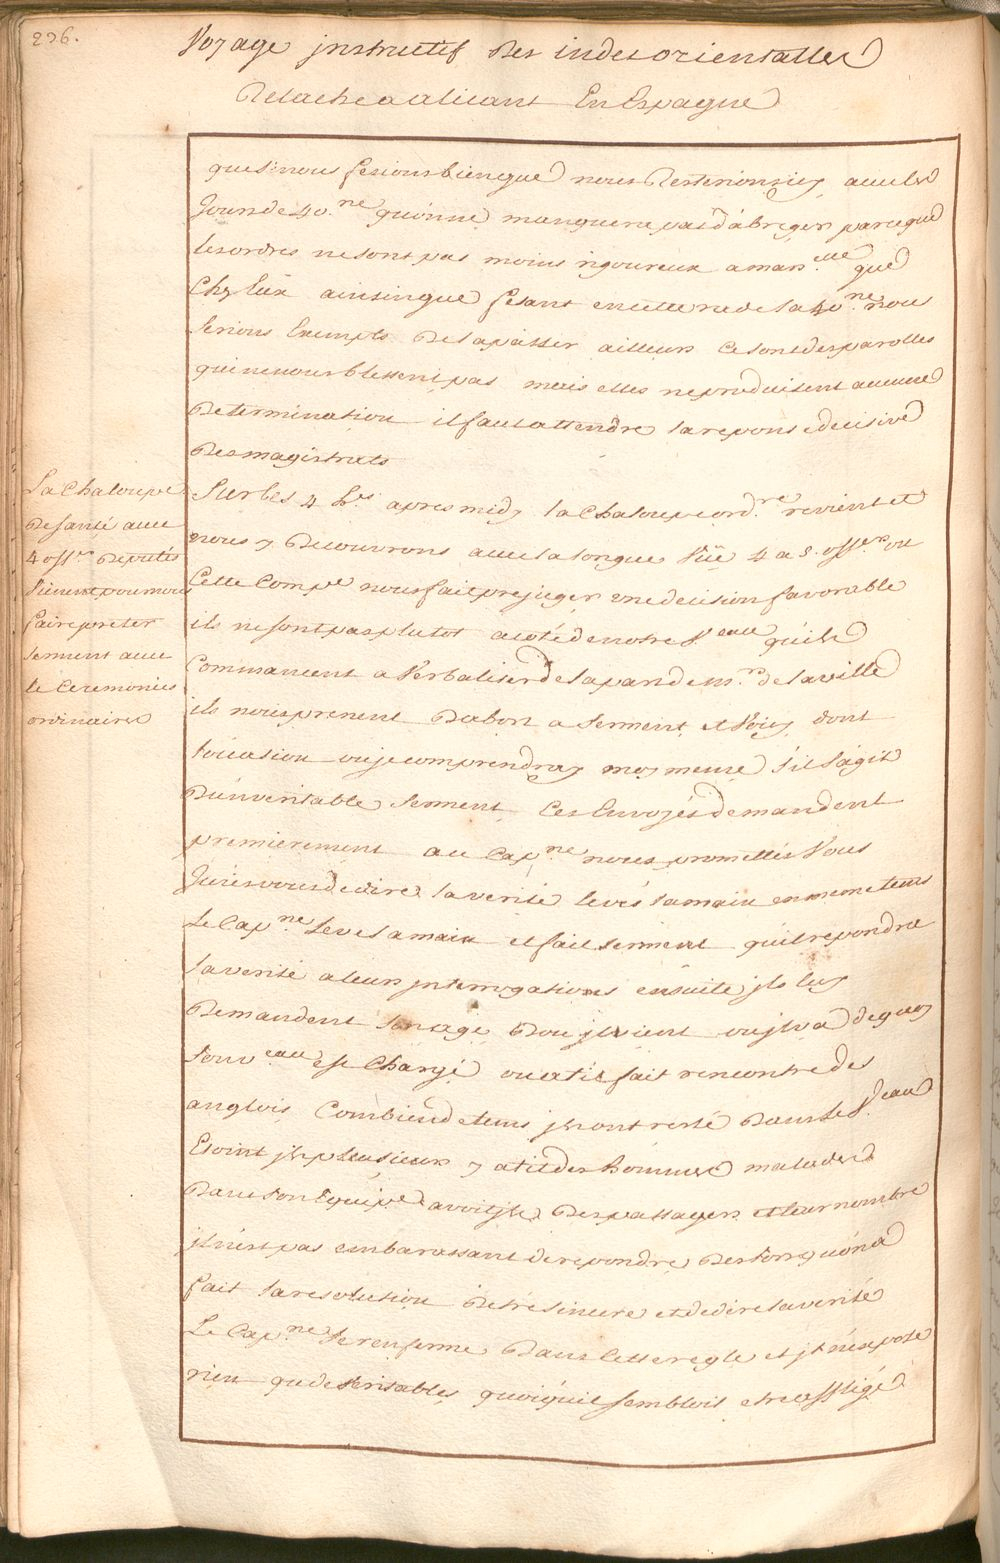 236.
Voyage jnstructif Des indes orientalles
Relache a alicant En Espagne
que si nous fesions bien que nous Resterions icy avec les
Jours de 40.ne qu'on ne manquera pas d'abreger parceque
les ordres ne sont pas moins rigoureux a mars.eille que
Chez Eux ainsin que fesant en cette rade la 40.ne nous
serions Exempts De la passer ailleurs ce sont des parolles
qui ne nous blessent pas mais elles ne produisent aucune
Determination il faut attendre la reponse decisive
Des magistrats
La Chaloupe
De santé avec
4 off.rs Deputés
Vienent pour nous
faire preter
serment avec
le Ceremonies
ordinaires
Sur les 4 h.rs apres midy la Chaloupe ord.re revient et
nous y Decouvrons avec la longue Vüe 4 a 5. off.ers ou
Cette Comp.e nous fait prejuger une decision favorable
ils ne sont pas plutot a coté de notre V.eau qu'ils
Commancent a Verbaliser de la part de m.rs de la ville
ils nous prenent Dabort a serment et Voicy dont
l'ocasion ou je comprendray moy meme s'il s'agit
D'un veritable serment Ces Envoyés demandent
premierement au Cap.ne nous promettés Vous
Jurés vous de dire la verité levés la main en meme tems
Le Cap.ne leve la main et fait serment qu'il repondra
la verité a leurs jnterrogations ensuite jls luy
Demandent son age Dou jl vient ou jl va de quoy
son v.eau est Chargé ou a til fait rencontre des
anglois Combien de tems jls ont resté Dans le V.eau
Etoint jls plusieurs y a til des hommes malades
Dans son Equip.e avoit jls Des passagers et leur nombre
jl n'est pas embarassant de repondre Des lors qu'on a
fait la resolution D'etre sincere et de dire la verité
Le Cap.ne se renferme Dans cette regle et jl n'expose
rien que de veritables quoiqu'il sembloit etre affligé